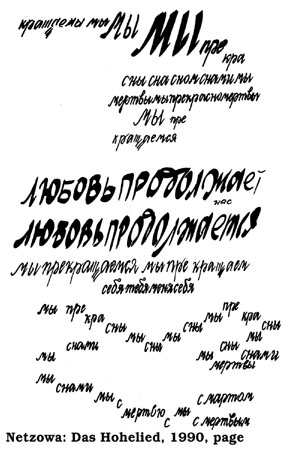 кращаемы мы мы мы пре
кра
сны сна сном снами мы
мертвы мы прекрасно мертвы
мы пре
кращаемся
любовь продолжает
нас
любовь продолжается
мы прекращаемся мы прекращаем
себя тебя меня себя
мы пре пре
кра мы кра
сны мы сны сны
мы мы мы
снами сны сны снами
мертвы
мы
снами мы с мартом
с мертвою с мы с мертвым
Netzowa: Das Hohelied, 1990, page